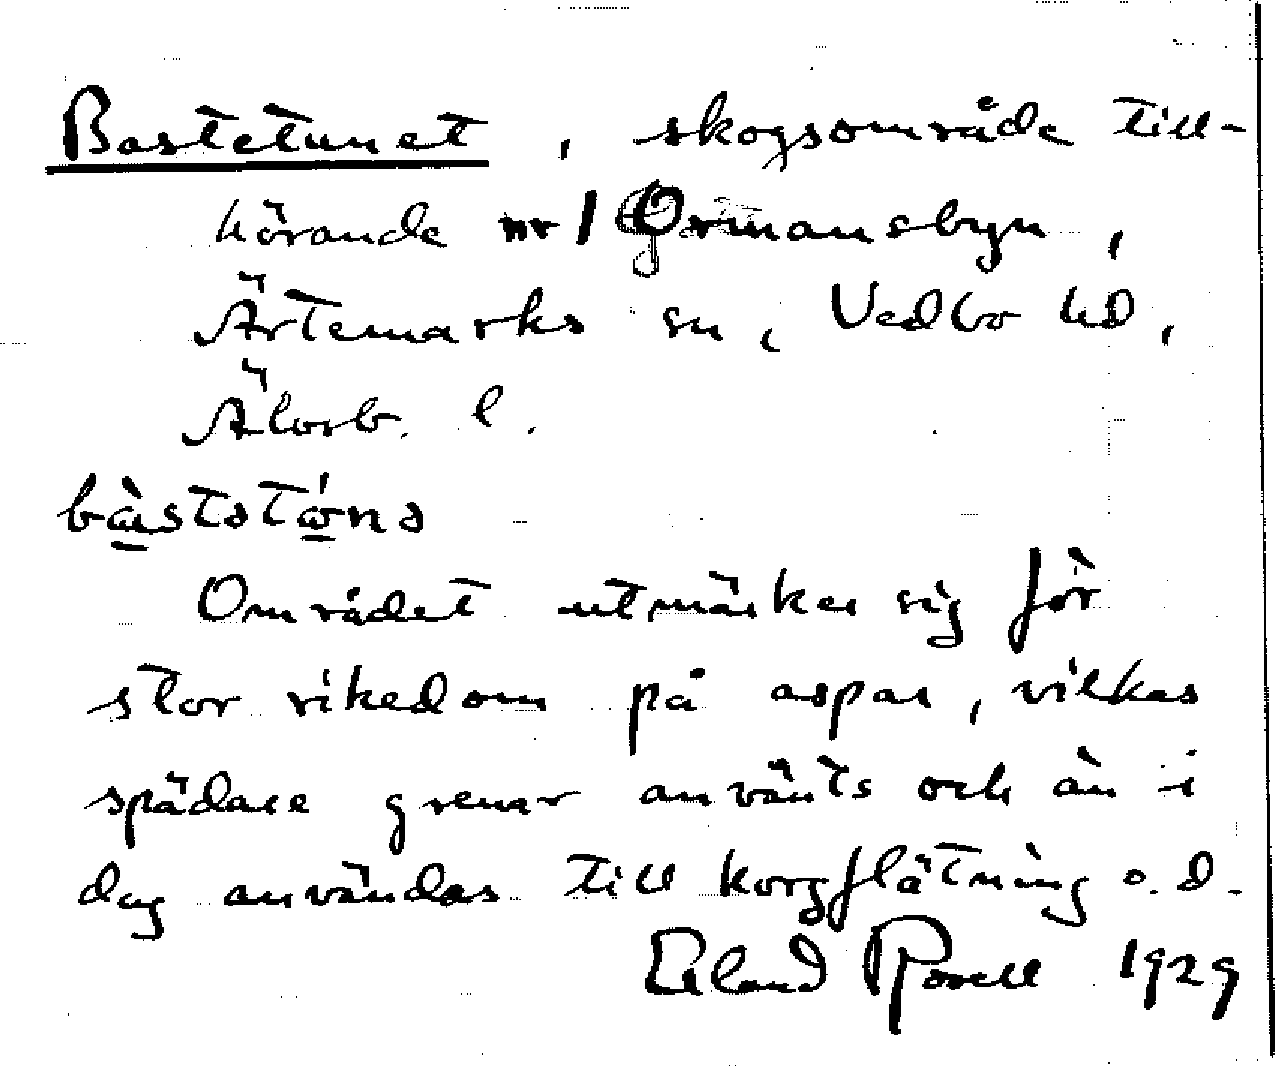 Bastetunet, skogsområde till-
hörande nr 1 Ormansbyn,
Ärtemarks sn, Vedbo hd,
Älvsb. l.
bàstatóna
Området utmärker sig för
stor rikedom på aspar, vilkas
spädare grenar använts och än i
dag användas till korgflätning o. d.
Erland Rosell 1929